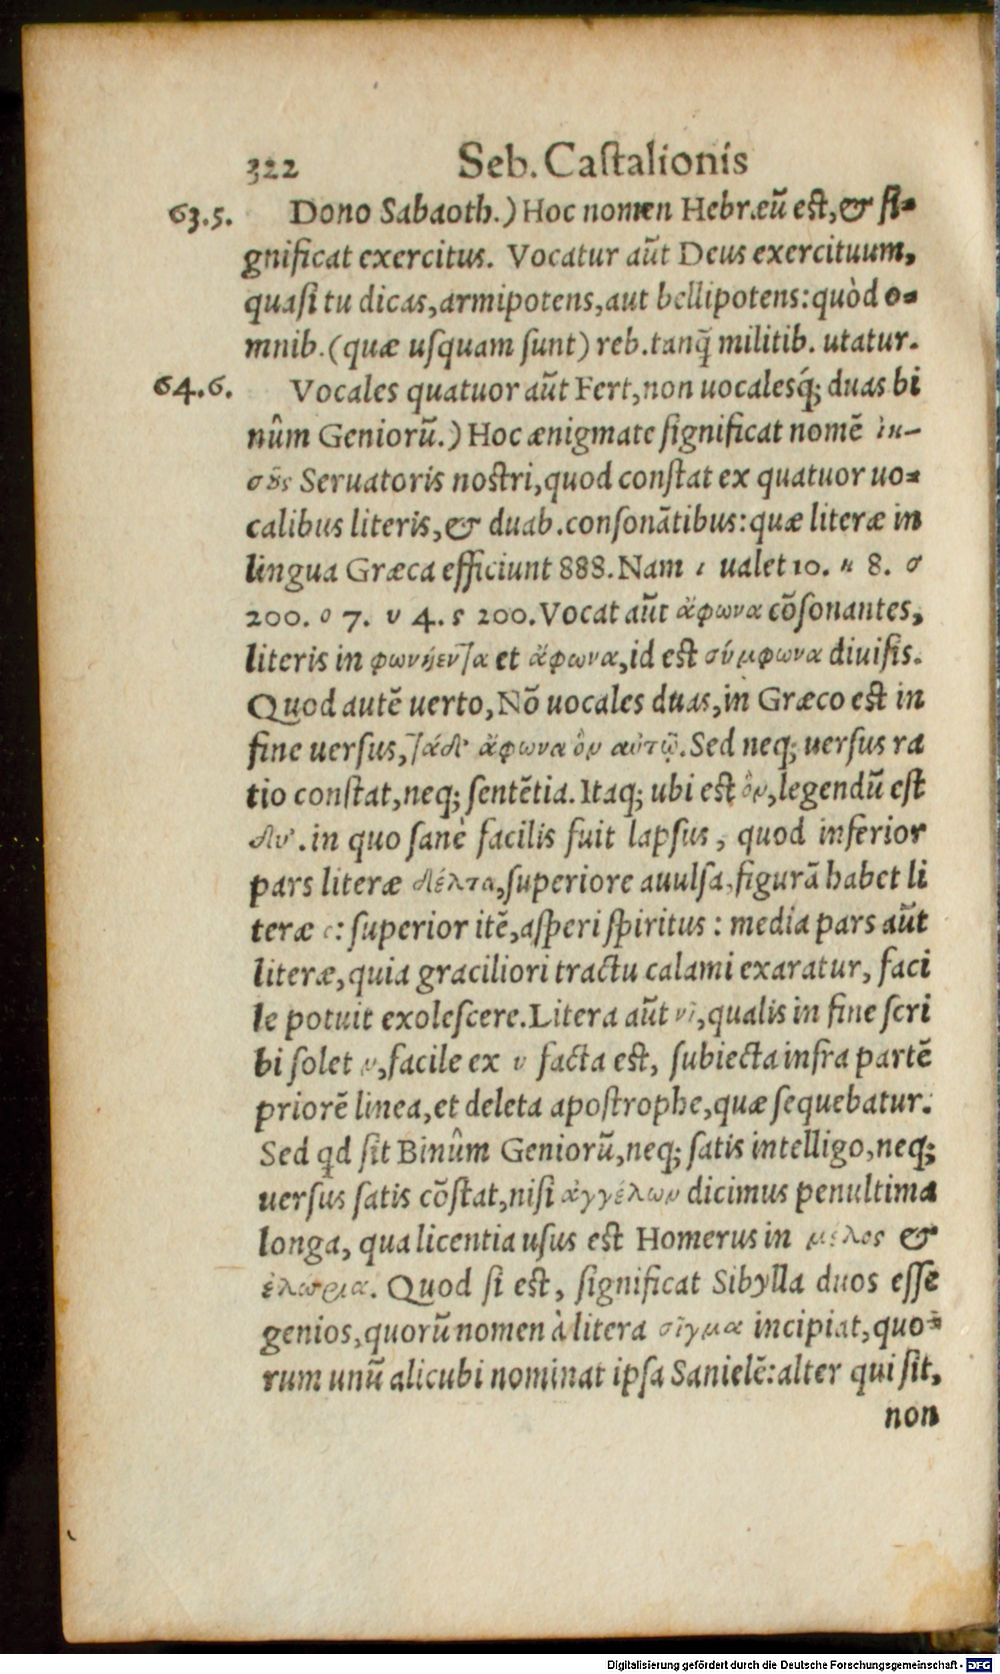 322 Seb. Castalionis
63.5. Dono Sabaoth.) Hoc nomen Hebræũ est, & si-
gnificat exercitus. Vocatur aũt Deus exercituum,
quasi tu dicas, armipotens, aut bellipotens: quòd o-
mnib. (quæ usquam sunt) reb. tanq̃ militib. utatur.
64.6. Vocales quatuor aũt Fert, non uocalesq́; duas bi
nûm Geniorũ.) Hoc ænigmate significat nomẽ ἰη-
σοῦς Seruatoris nostri, quod constat ex quatuor uo-
calibus literis, & duab. consonãtibus: quæ literæ in
lingua Græca efficiunt 888. Nam ι ualet 10. η 8. σ
200. ο 7. υ 4. ς 200. Vocat aũt ἄφωνα cõsonantes,
literis in φωνήεντα et ἄφωνα, id est σύμφωνα diuisis.
Quod autẽ uerto, Nõ uocales duas, in Græco est in
fine uersus, τάδ' ἄφωνα ὃν αὐτῷ. Sed neq; uersus ra
tio constat, neq; sentẽtia. Itaq; ubi est ὃν, legendũ est
δύ'. in quo sanè facilis fuit lapsus, quod inferior
pars literæ δέλτα, superiore auulsa, figurã habet li
teræ ο: superior itẽ, asperi spiritus: media pars aũt
literæ, quia graciliori tractu calami exaratur, faci
le potuit exolescere. Litera aũt νῖ, qualis in fine scri
bi solet ν, facile ex υ facta est, subiecta infra partẽ
priorẽ linea, et deleta apostrophe, quæ sequebatur.
Sed qd sit Binûm Geniorũ, neq; satis intelligo, neq;
uersus satis cõstat, nisi ἀγγέλων dicimus penultima
longa, qua licentia usus est Homerus in μέλος &
ἑλώρια. Quod si est, significat Sibylla duos esse
genios, quorũ nomen à litera σῖγμα incipiat, quo-
rum unũ alicubi nominat ipsa Sanielẽ: alter qui sit,
non
Digitalisierung gefördert durch die Deutsche Forschungsgemeinschaft - DFG